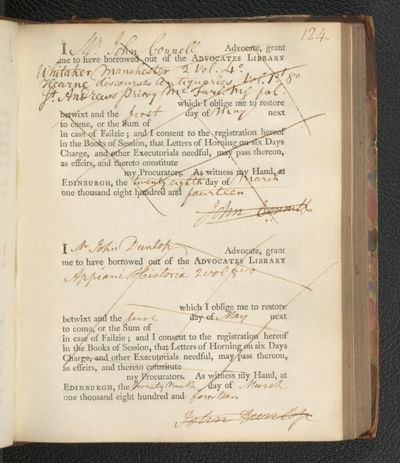 124.
I Mr. John Connell Advocate, grant
me to have borrowed out of the ADVOCATES LIBRARY
Whitaker Manchester 2 Vol. 4o.
Hearne discourses Antiquaries Vol. 1st 8o
St. Andrews Priory Mc Farl. MS fol.
which I oblige me to restore
betwixt and the first day of May next
to come, or the Sum of
in case of Failzie; and I consent to the registration hereof
in the Books of Session, that Letters of Horning on six Days
Charge, and other Executorials needful, may pass thereon,
as effeirs, and thereto constitute
my Procurators. As witness my Hand, at
EDINBURGH, the twenty eighth day of March
one thousand eight hundred and fourteen
John Connell
I Mr John Dunlop Advocate, grant
me to have borrowed out of the ADVOCATES LIBRARY
Appiani Historia 2 vol 8vo
which I oblige me to restore
betwixt and the day of May next
to come, or the Sum of
in case of Failzie; and I consent to the registration hereof
in the Books of Session, that Letters of Horning on six Days
Charge, and other Executorials needful, may pass thereon,
as effeirs, and thereto constitute
my Procurators. As witness my Hand, at
EDINBURGH, the Twenty Ninth day of March
one thousand eight hundred and fourteen
John Dunlop